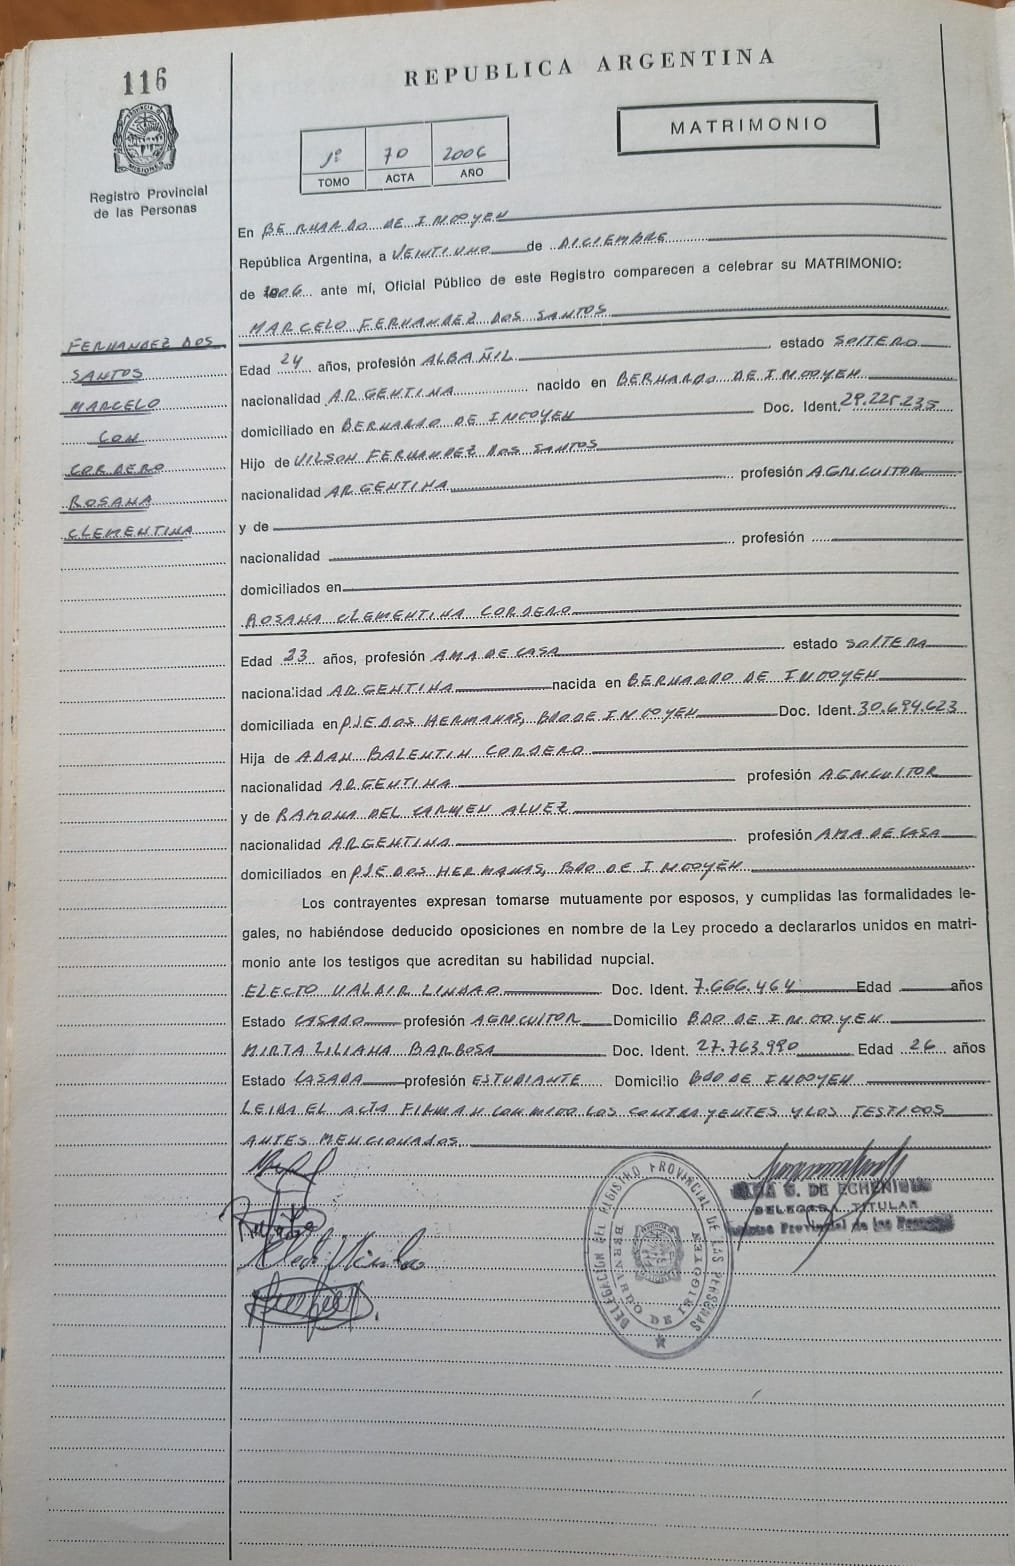 116
REPUBLICA ARGENTINA
MATRIMONIO
PROVINCIA DE MISIONES
Registro Provincial
de las Personas
1º 70 2006
TOMO ACTA AÑO
En BERNARDO DE IRIGOYEN
República Argentina, a VEINTIUNO de DICIEMBRE
de 2006 ante mí, Oficial Público de este Registro comparecen a celebrar su MATRIMONIO:
MARCELO FERNANDEZ DOS SANTOS
FERNANDEZ DOS
SANTOS
MARCELO
CON
CORDERO
ROSANA
CLEMENTINA
Edad 24 años, profesión ALBAÑIL estado SOLTERO
nacionalidad ARGENTINA nacido en BERNARDO DE IRIGOYEN
domiciliado en BERNARDO DE IRIGOYEN Doc. Ident. 29.225.235
Hijo de VILSON FERNANDEZ DOS SANTOS
nacionalidad ARGENTINA profesión AGRICULTOR
y de
nacionalidad profesión
domiciliados en
ROSANA CLEMENTINA CORDERO
Edad 23 años, profesión AMA DE CASA estado SOLTERA
nacionalidad ARGENTINA nacida en BERNARDO DE IRIGOYEN
domiciliada en PJE DOS HERMANAS, BDO DE IRIGOYEN Doc. Ident. 30.694.623
Hija de ADAN BALENTIN CORDERO
nacionalidad ARGENTINA profesión AGRICULTOR
y de RAMONA DEL CARMEN ALVEZ
nacionalidad ARGENTINA profesión AMA DE CASA
domiciliados en PJE DOS HERMANAS, BDO DE IRIGOYEN
Los contrayentes expresan tomarse mutuamente por esposos, y cumplidas las formalidades le-
gales, no habiéndose deducido oposiciones en nombre de la Ley procedo a declararlos unidos en matri-
monio ante los testigos que acreditan su habilidad nupcial.
ELECTO VALDIR LINDAO Doc. Ident. 7.666.464 Edad años
Estado CASADO profesión AGRICULTOR Domicilio BDO DE IRIGOYEN
MIRTA LILIANA BARBOSA Doc. Ident. 27.763.990 Edad 26 años
Estado CASADA profesión ESTUDIANTE Domicilio BDO DE IRIGOYEN
LEIDA EL ACTA FIRMAN CONMIGO LOS CONTRAYENTES Y LOS TESTIGOS
ANTES MENCIONADOS
DELEGACION DEL REGISTRO PROVINCIAL DE LAS PERSONAS
BERNARDO DE IRIGOYEN
G. DE ECHENIQUE
DELEGADA TITULAR
Provincial de las Personas